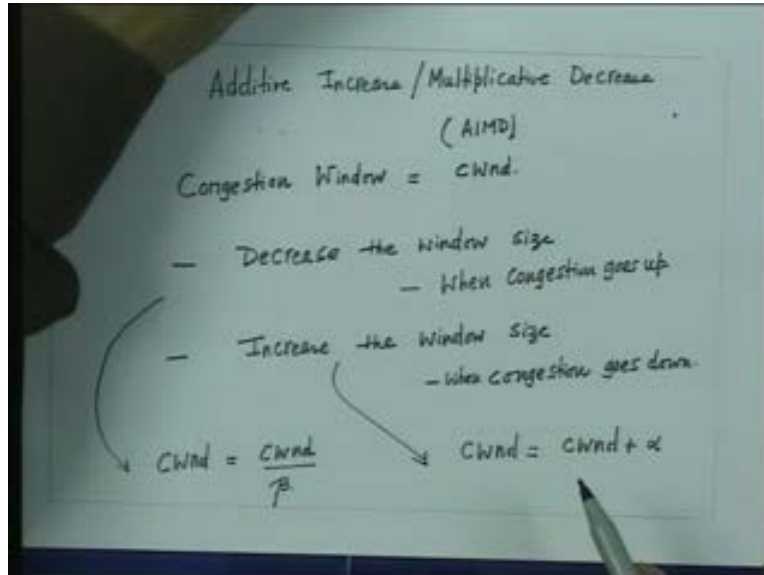 Additive Increase / Multiplicative Decrease
(AIMD)
Congestion Window = cwnd.
— Decrease the window size
— When Congestion goes up
— Increase the window size
— when congestion goes down.
cwnd = cwnd / β
cwnd = cwnd + α